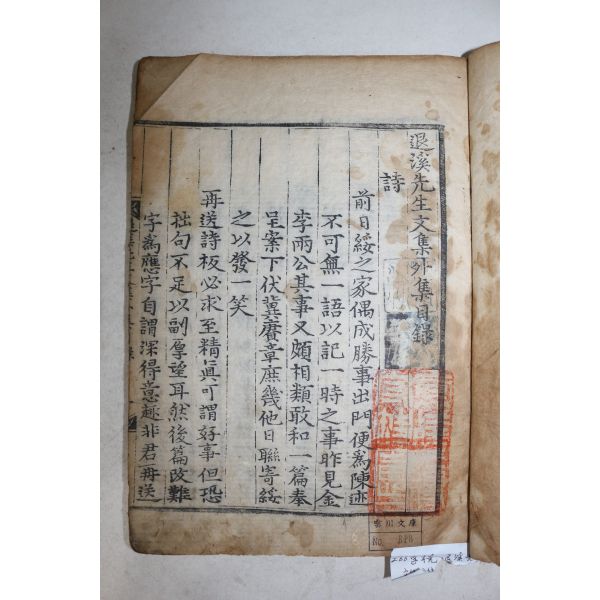 退溪先生文集外集目錄
詩
前日綏之家偶成勝事出門便爲陳迹
不可無一語以記一時之事昨見金
李兩公其事又頗相類敢和一篇奉
呈案下伏冀賡章庶幾他日聯寄綏
之以發一笑
再送詩板必求至精眞可謂好事但恐
拙句不足以副厚望耳然後篇改難
字爲應字自謂深得意趣非君再送
文庫
No.